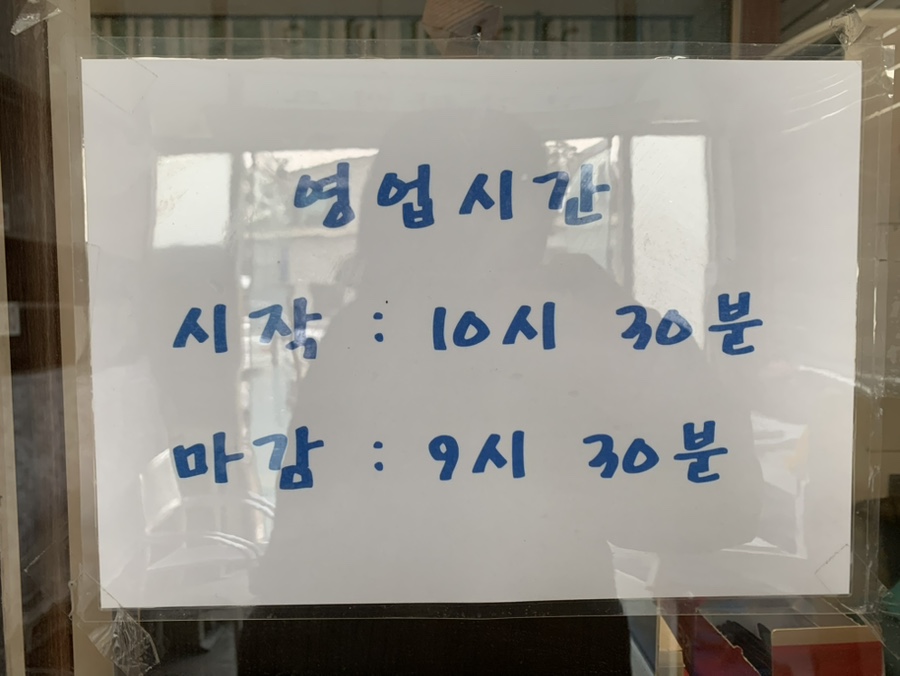 영업시간
시작 : 10시 30분
마감 : 9시 30분